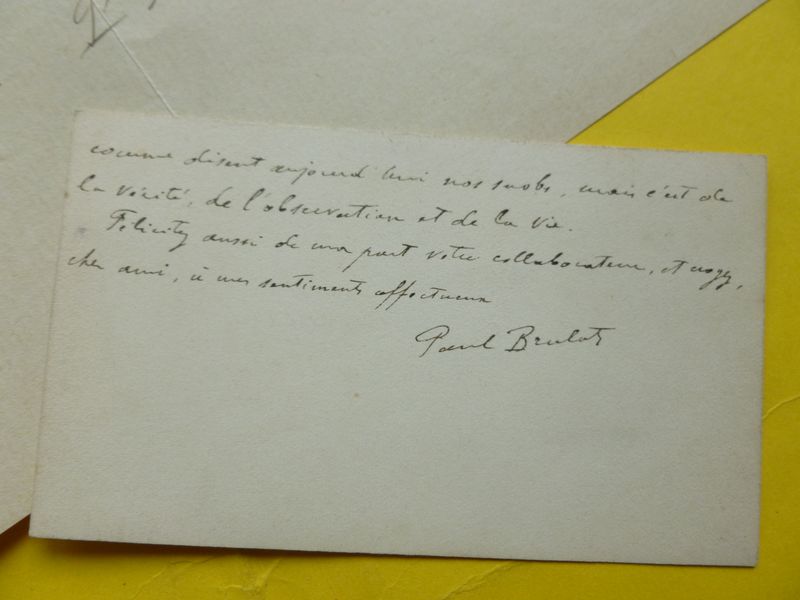 comme disent aujourd'hui nos snobs, mais c'est de
la vérité, de l'observation et de la vie.
Félicitez aussi de ma part votre collaborateur, et croyez,
cher ami, à mes sentiments affectueux
Paul Brulat